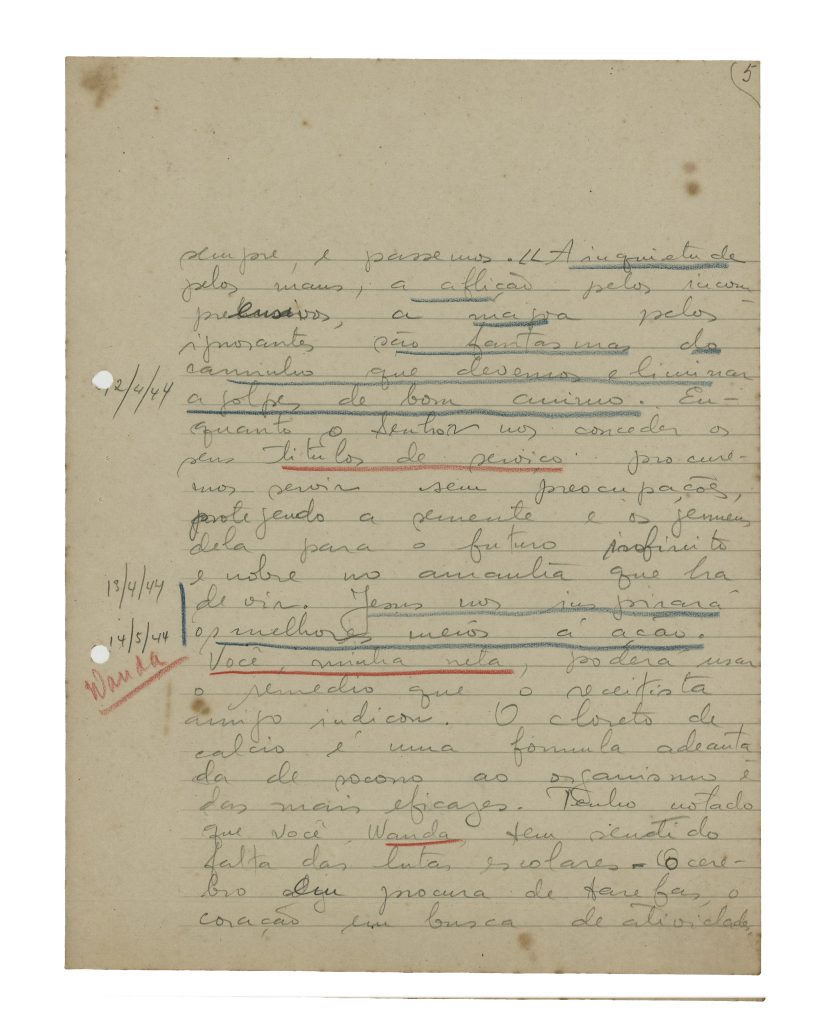 5
sempre, e passemos. "A inquietude
pelos maus, a aflição pelos incom
preensivos, a magoa pelos
ignorantes são fantasmas do
caminho que devemos eliminar
12/4/44
a golpes de bom animo. En-
quanto o Senhor nos conceder os
seus titulos de serviço procure-
mos servir sem preocupações,
protegendo a semente e os germens
dela para o futuro infinito
e nobre no amanhã que ha
13/4/44
de vir. Jesus nos inspirará
os melhores meios á ação.
14/5/44
Wanda
Você, minha neta, poderá usar
o remedio que o receitista
amigo indicou. O cloreto de
calcio é uma fórmula adeanta
da de socorro ao organismo e
das mais eficazes. Tenho notado
que você, Wanda, tem sentido
falta das lutas escolares - O cere-
bro em procura de tarefas, o
coração em busca de atividades,